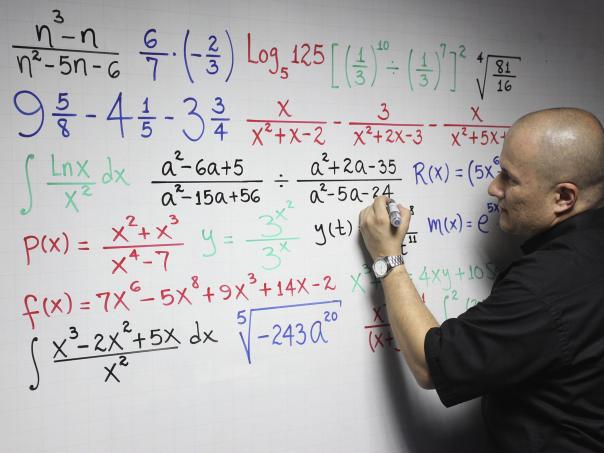 (n³-n)/(n²-5n-6) 6/7·(-2/3) Log₅125 [(1/3)¹⁰÷(1/3)⁷]² ⁴√(81/16)
9 5/8 - 4 1/5 - 3 3/4 x/(x²+x-2) - 3/(x²+2x-3) - x/(x²+5x+
∫ Lnx/x² dx (a²-6a+5)/(a²-15a+56) ÷ (a²+2a-35)/(a²-5a-24) R(x)=(5x⁶
P(x)= (x²+x³)/(x⁴-7) y= 3^(x²)/3^x y(t) m(x)=e^(5x
f(x)=7x⁶-5x⁸+9x³+14x-2 = 4xy+10
∫ (x³-2x²+5x)/x² dx ⁵√(-243a²⁰)